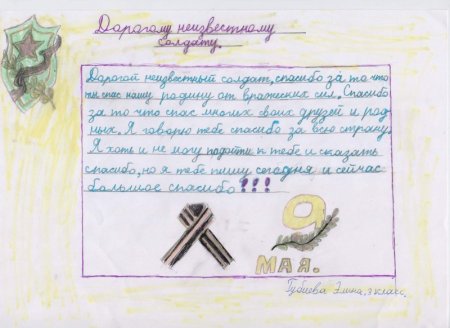 Дорогому неизвестному
солдату.
Дорогой неизвестный солдат, спасибо за то что
ты спас нашу родину от вражеских сил. Спасибо
за то что спас многих своих друзей и род
ных. Я говорю тебе спасибо за всю страну.
Я хоть и не могу подойти к тебе и сказать
спасибо, но я тебе пишу сегодня и сейчас
большое спасибо!!!
9
МАЯ.
Элина, 3 класс.